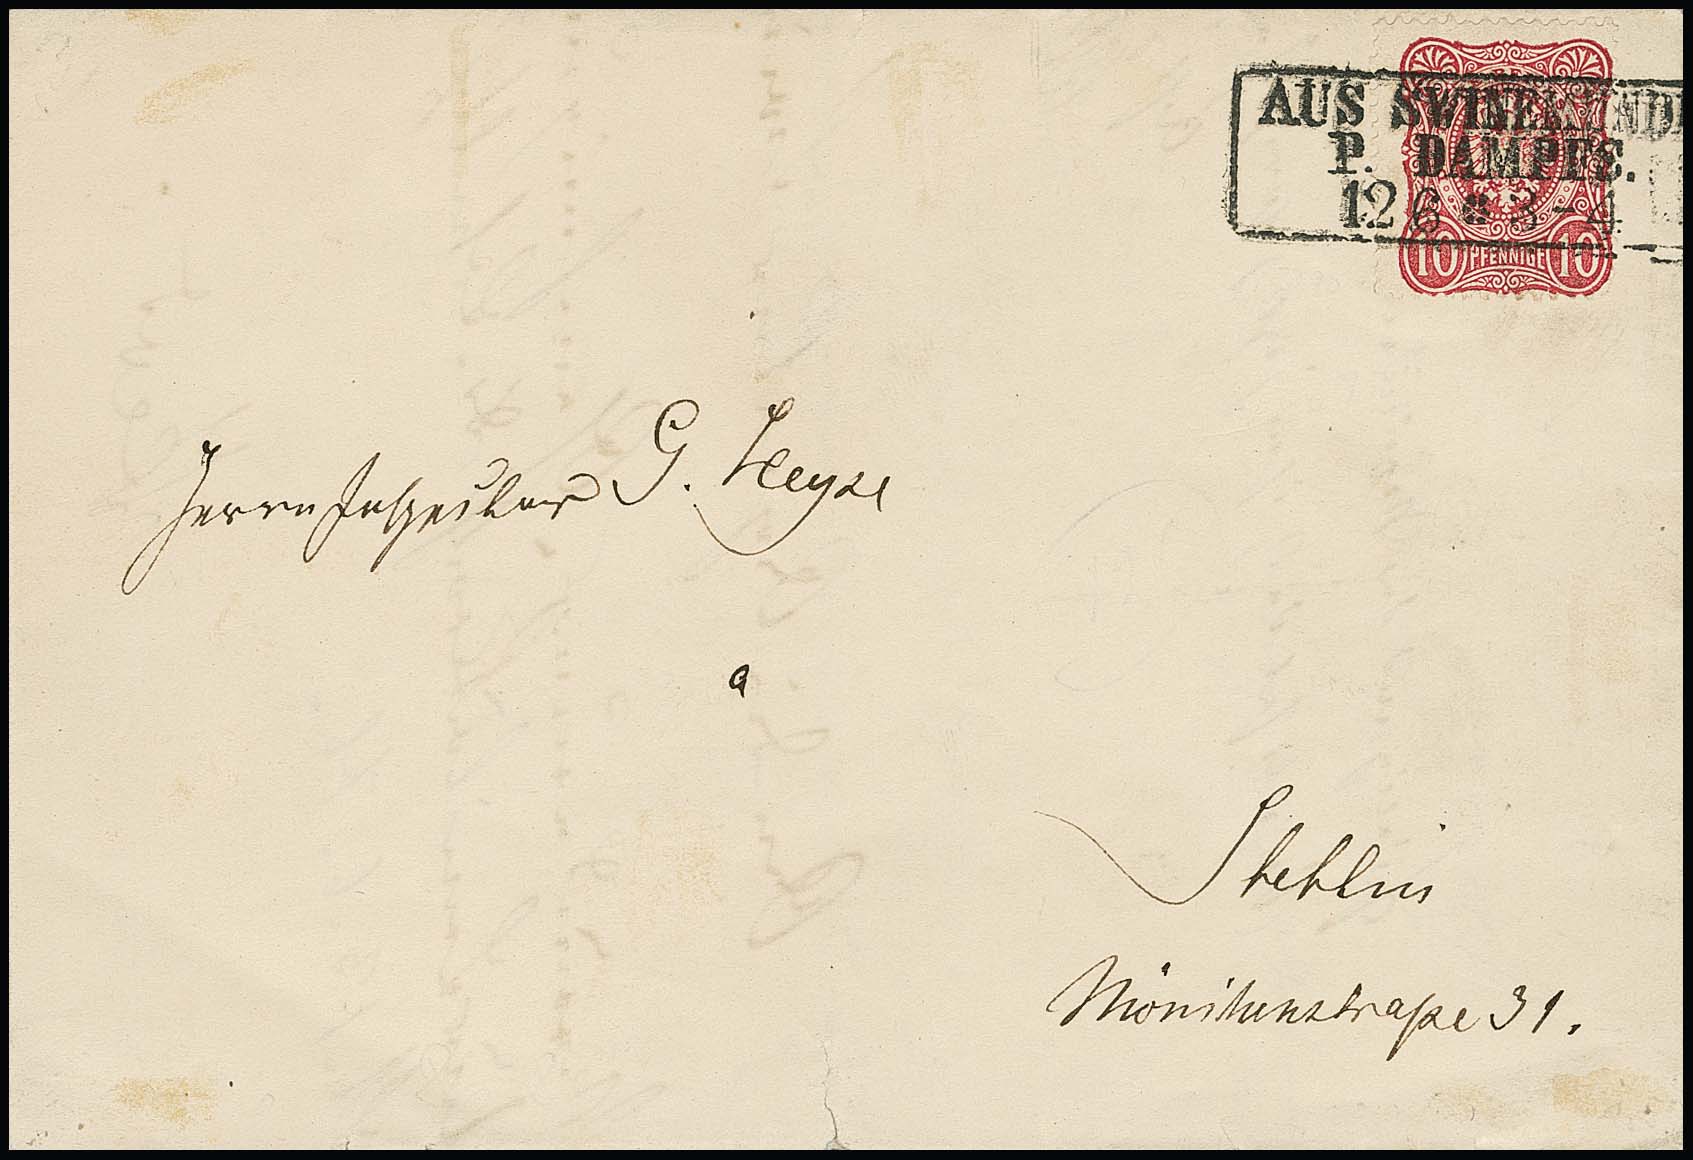 AUS SWINEMÜNDE
P. DAMPFS.
12 6 * 3-4
10 PFENNIGE 10
Herrn Inspector G. Heyse
Stettin
Mönchenstraße 31.